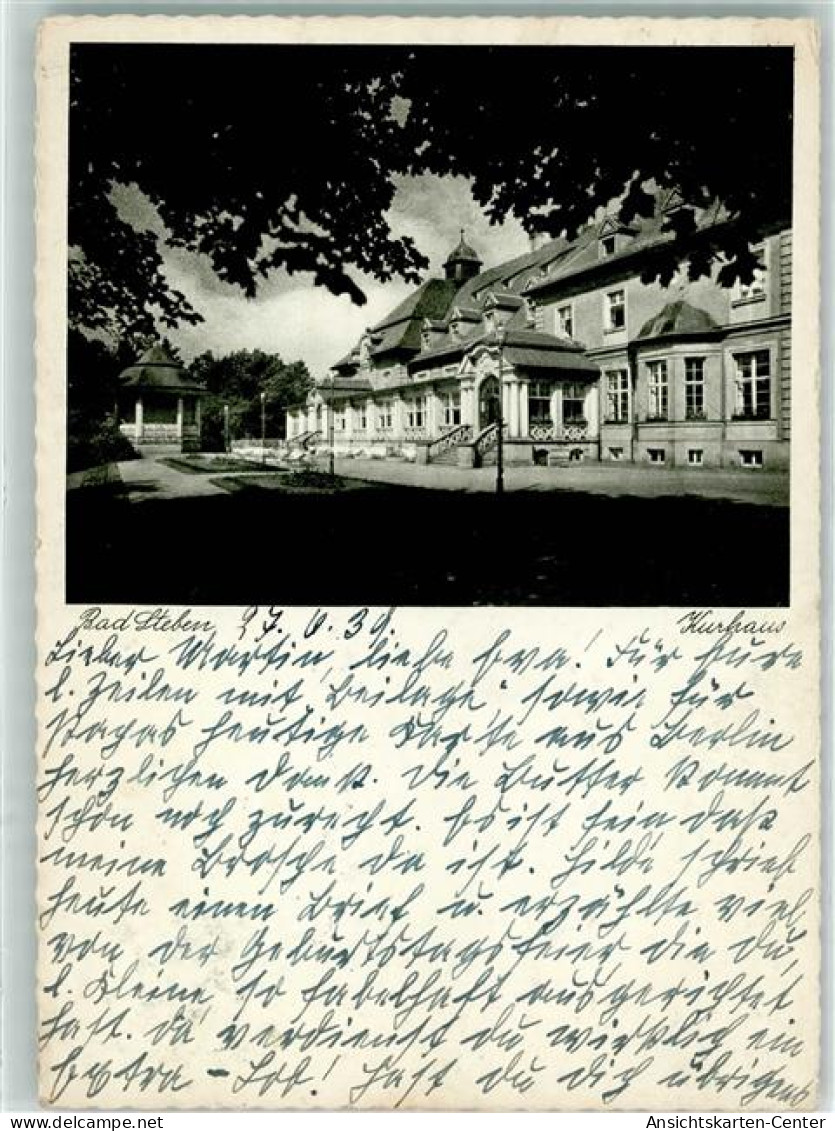 Bad Steben
Kurhaus
27. 6. 39.
Lieber Martin, liebe Eva! Für Eure
l. Zeilen mit Beilage, sowie für
Papas heutige Karte aus Berlin
herzlichen Dank. Die Butter kommt
schon noch zurecht. Es ist fein daß
meine Brosche da ist. Hilde schrieb
heute einen Brief u. erzählte viel
von der Geburtstagsfeier die du,
l. Kleine so fabelhaft ausgerichtet
hast. Da verdienst du wirklich ein
Extra-Lob! Hast du dich übrigens
bad steben
Ansichtskarten-Center